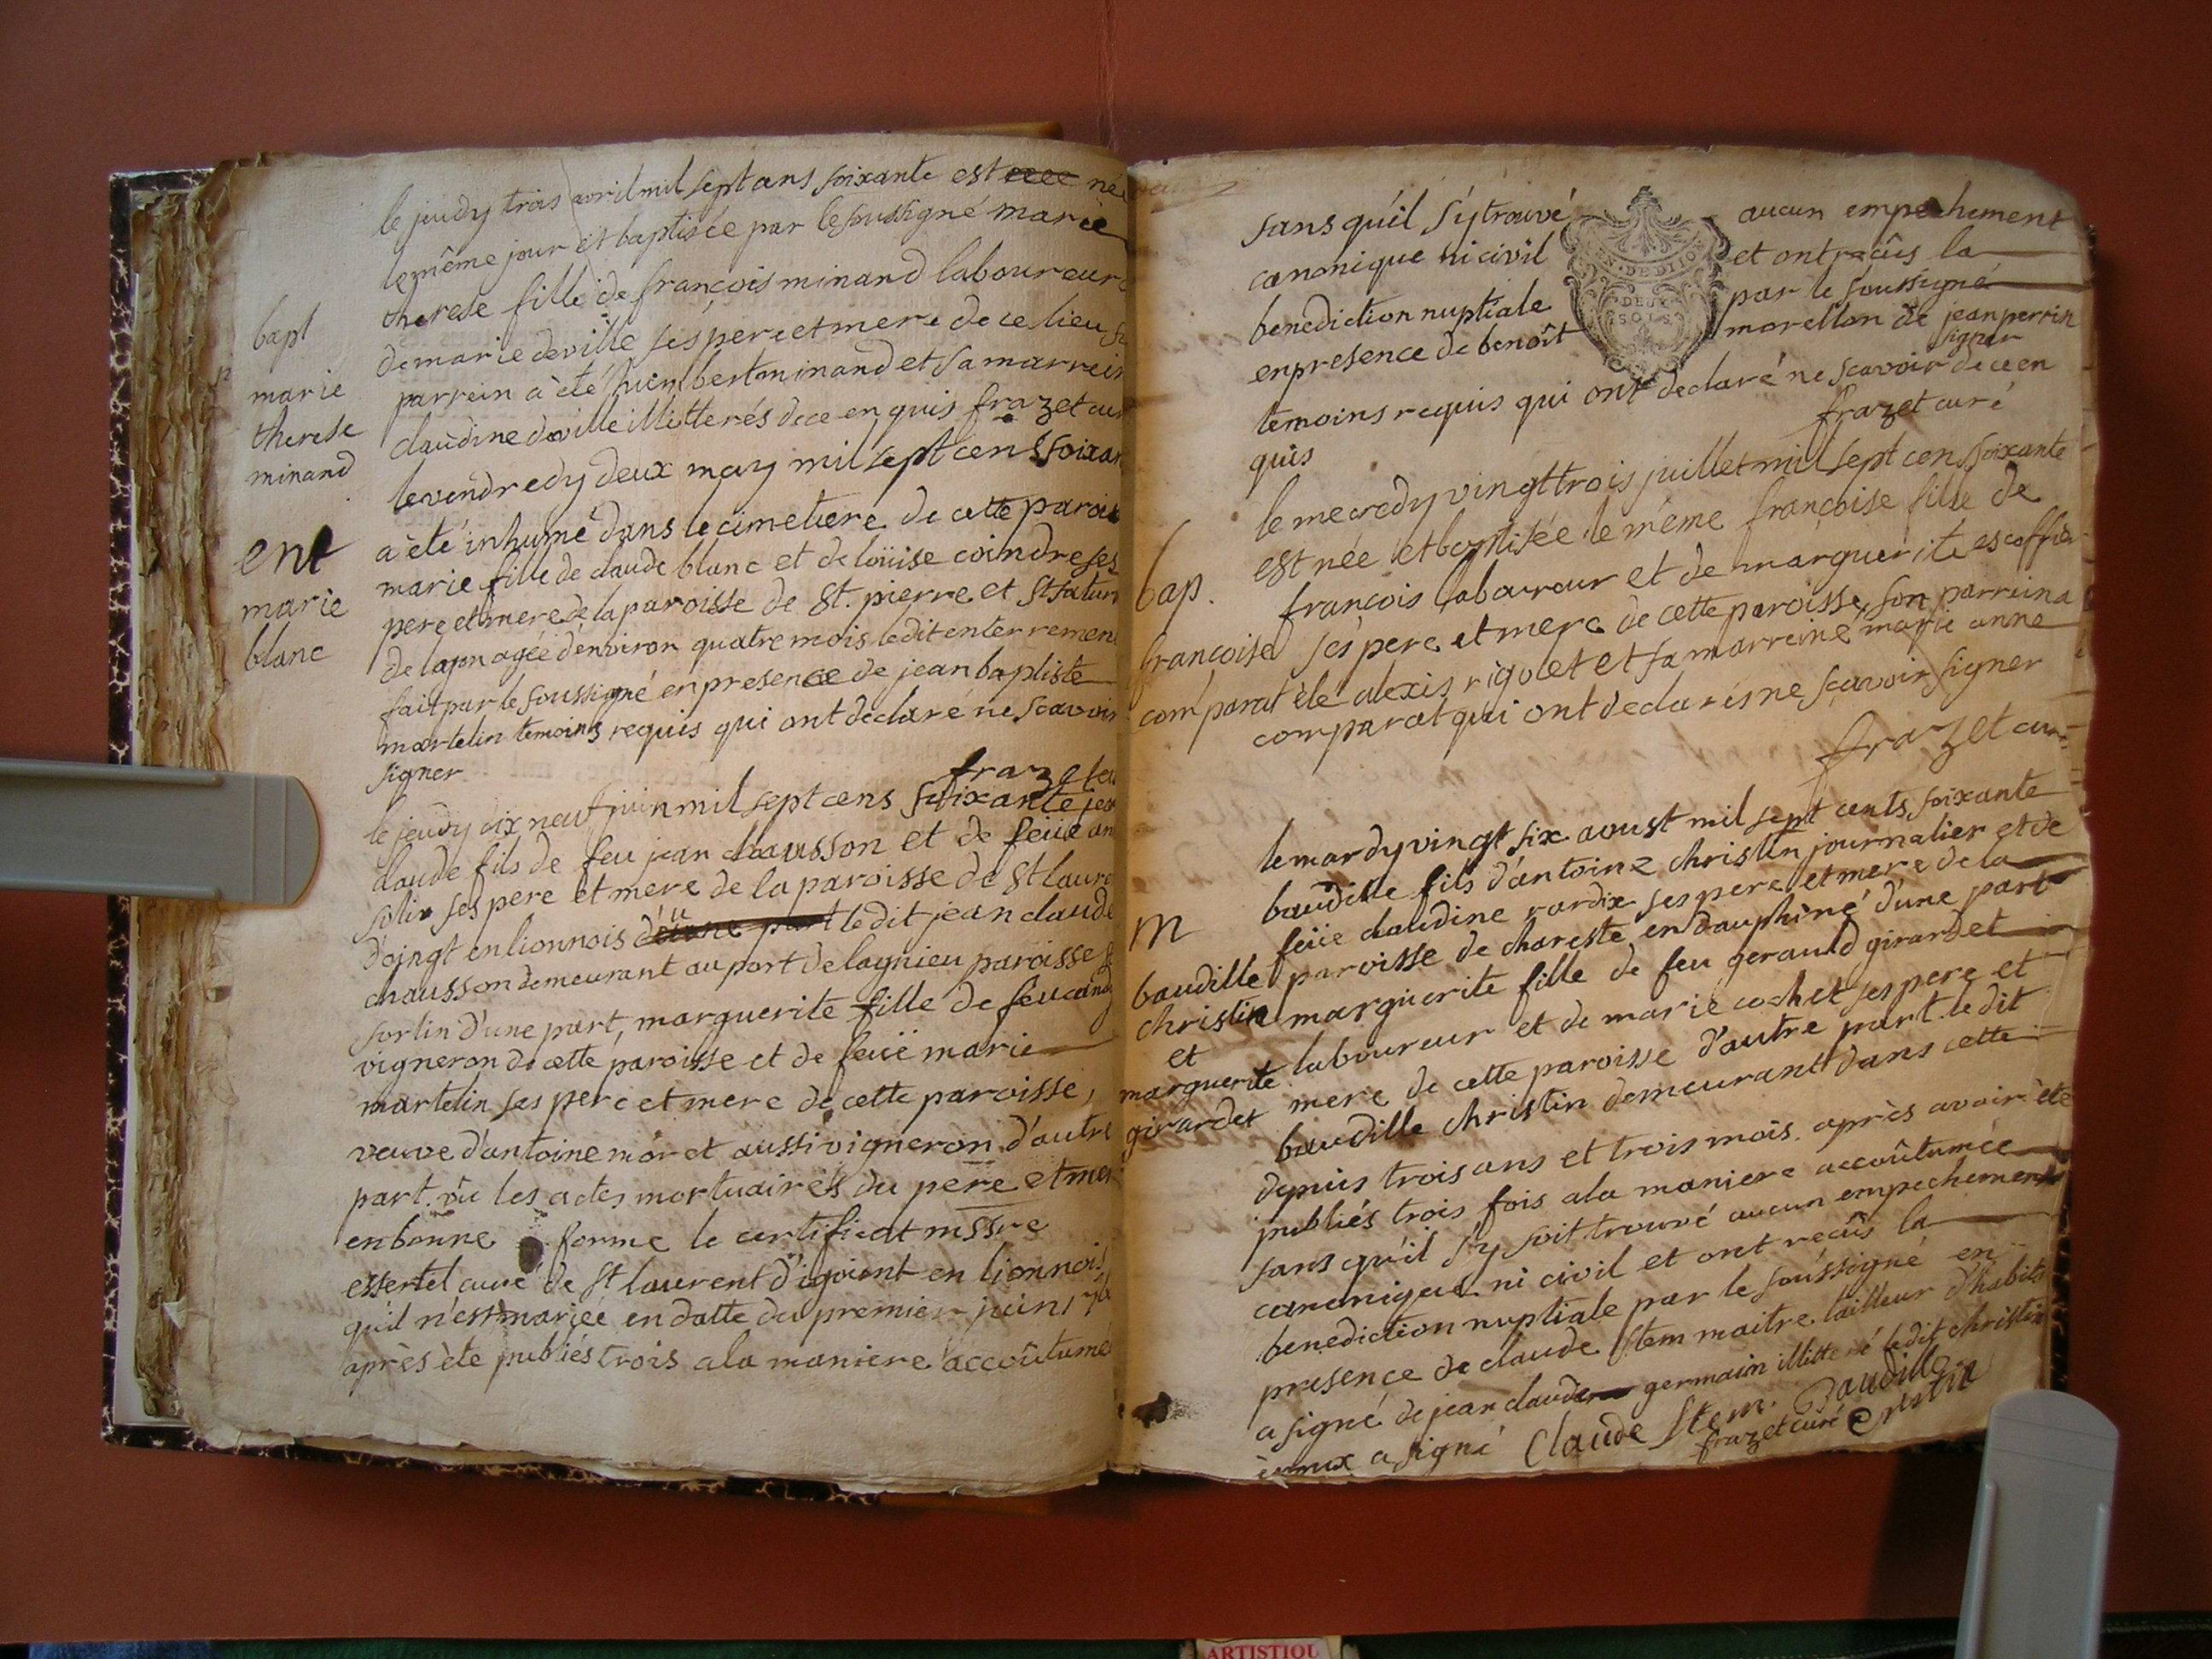 le jeudy trois avril mil sept ans soixante est née
le même jour et baptisée par le soussigné marie
therese fille de françois minand laboureur
bapt
marie
therese
minand
de marie deville ses pere et mere de ce lieu
parrein à èté humbert minand et sa marrein
claudine deville illitterés de ce enquis frazet cur
le vendredy deux may mil sept cens soixan
ent
marie
blanc
a èté inhumé dans le cimetiere de cette parois
marie fille de claude blanc et de loüise coindre ses
pere et mere de la paroisse de St. pierre et St saturn
de lagn agée d'environ quatre mois ledit enterrement
fait par le soussigné en presence de jean baptiste
martelin temoins requis qui ont declaré ne scavoir
signer
frazet cu
le jeudy dix neuf juin mil sept cens soixante jean
claude fils de feu jean chausson et de feüe an
solin ses pere et mere de la paroisse de St laure
d'oingt en lionnois ledit jean claude
chausson demeurant au port de lagnieu paroisse
sortin d'une part, marguerite fille de feu
vigneron de cette paroisse et de feüe marie
martelin ses pere et mere de cette paroisse,
veuve d'antoine moret aussi vigneron d'autre
part. vu les actes mortuaires du pere et mer
en bonne forme le certificat mssre
essertel curé de St laurent d'igoint en lionnois
qu'il n'est mariee en datte du premier juin
après ète publiés trois a la maniere accoûtumé
sans qu'il s'y trouvé aucun empechement
canonique ni civil et ont reçûs la
benediction nuptiale par le soussigné
en presence de benoît morellon de jean perrin
signer
temoins requis qui ont declaré ne scavoir de ce en
quis
frazet curé
EN. DE DIJON
DEUX
SOLS
le mecredy vingt trois juillet mil sept cens soixante
est née et baptisée le même françoise fille de
bap.
françoise
comparat
françois laboureur et de marguerite escoffier
ses pere et mere de cette paroisse, son parrein a
èté alexis rigolet et sa marreine marie anne
comparat qui ont declarés ne sçavoir signer
frazet curé
le mardy vingt six aoust mil sept cents soixante
baudille fils d'antoine christin journalier et de
m
baudille
christin
et
marguerite
girardet
feüe claudine rardix ses pere et mere de la
paroisse de chareste en dauphiné d'une part
marguerite fille de feu gerauld girardet
laboureur et de marie cochet ses pere et
mere de cette paroisse d'autre part. le dit
baudille christin demeurant dans cette
depuis trois ans et trois mois. après avoir èté
publiés trois fois a la maniere accoûtumée
sans qu'il s'y soit trouvé aucun empechement
canonique ni civil et ont reçûs la
benediction nuptiale par le soussigné en
presence de claude Stem maitre tailleur d'habits
a signé de jean claude germain illitteré ledit christin
èpoux a signé Claude Stem. Baudille
cristin
frazet curé
ARTISTIQU